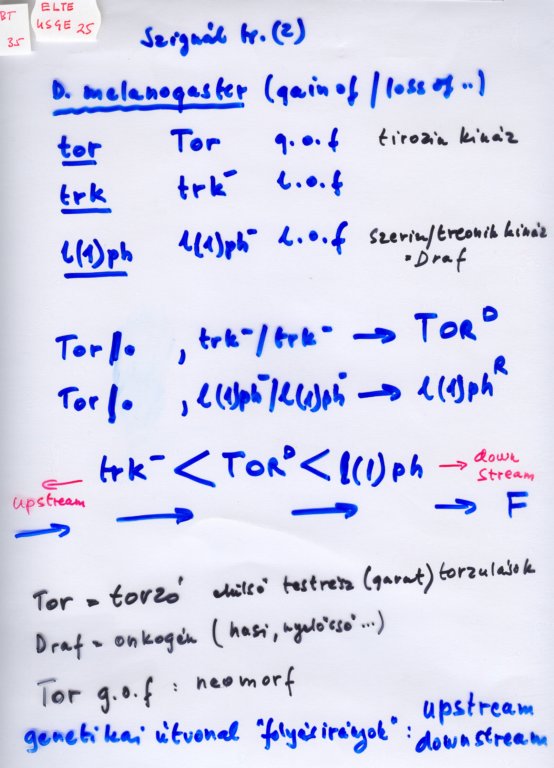 BT
35
ELTE
USGE 25
Szignál tr. (2)
D. melanogaster (gain of / loss of ..)
tor Tor g.o.f tirozin kináz
trk trk⁻ l.o.f
l(1)ph l(1)ph⁻ l.o.f szerin/treonin kináz
= Draf
Tor/o , trk⁻/trk⁻ → TOR^D
Tor/o , l(1)ph⁻/l(1)ph⁻ → l(1)ph^R
← upstream trk⁻ < TOR^D < l(1)ph → down stream
→ → → → F
Tor = torzó elülső testrész (garat) torzulások
Draf = onkogén (hasi, nyelőcső ...)
Tor g.o.f : neomorf
genetikai útvonal "folyásirányok" : upstream
downstream